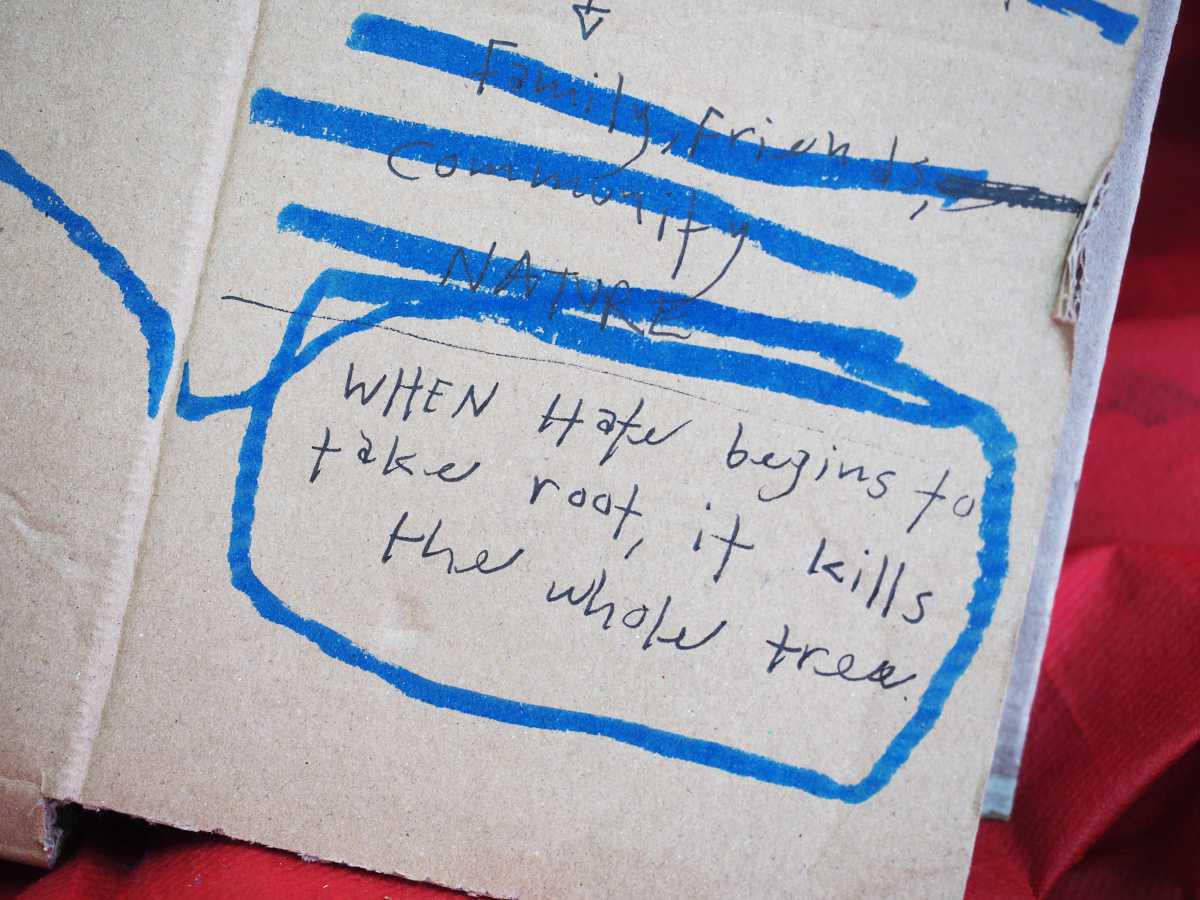 Family, Friends,
Community
NATURE
WHEN Hate begins to
take root, it kills
the whole tree.